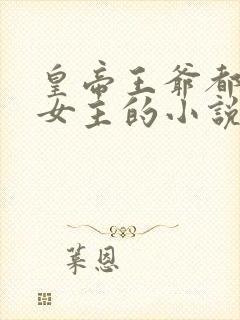 皇帝王爺都
女主的小說
葉恩